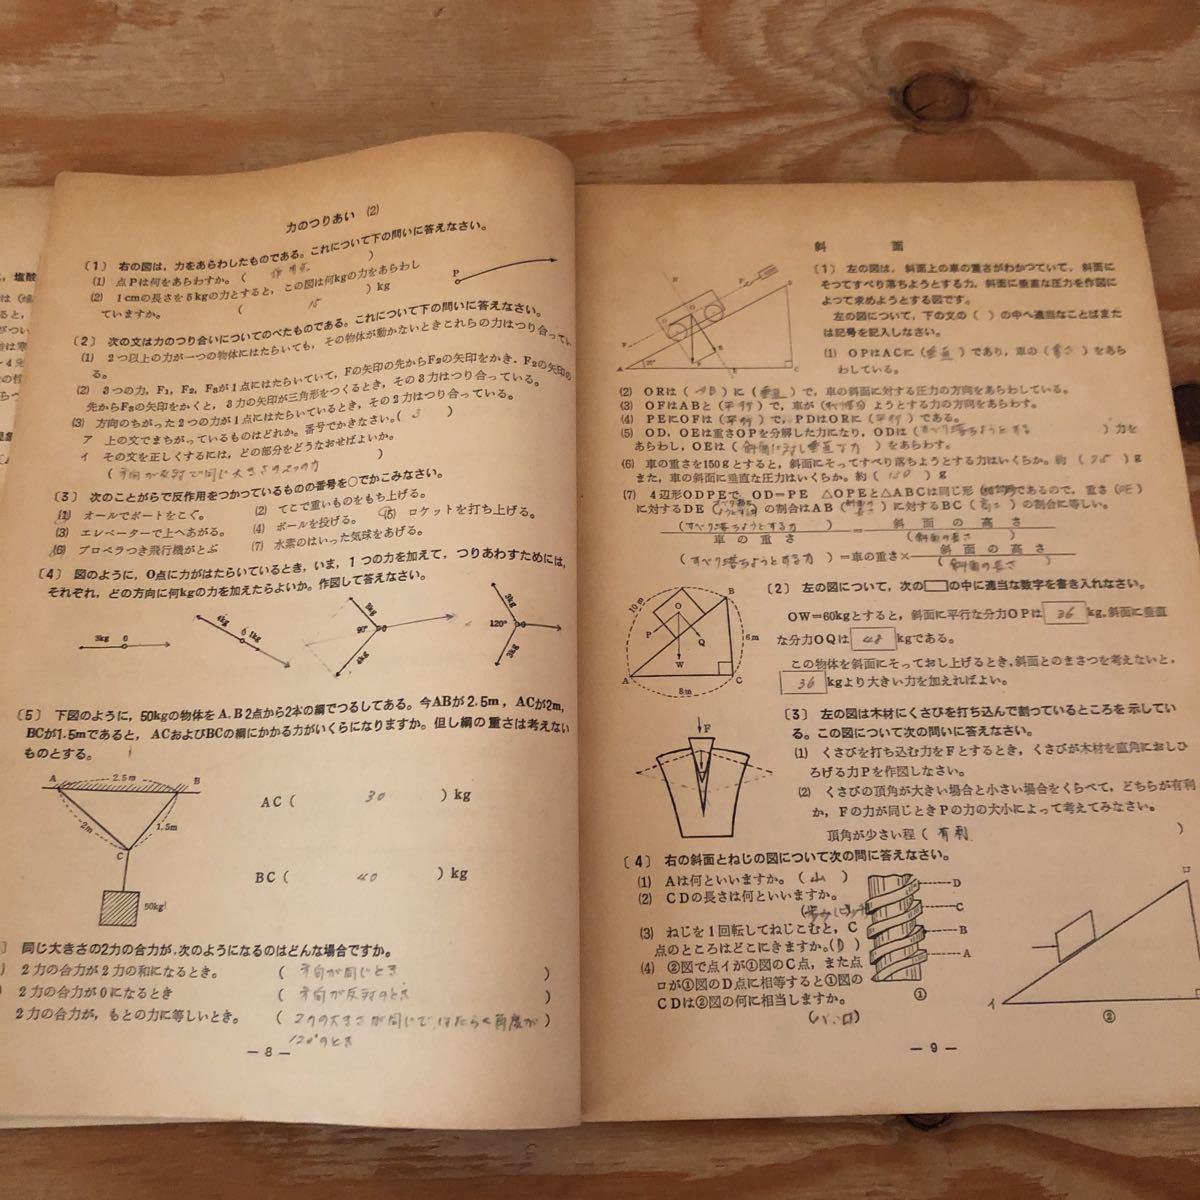 塩酸
力のつりあい (2)
〔1〕 右の図は，力をあらわしたものである。これについて下の問いに答えなさい。
(1) 点Pは何をあらわすか。( 作用点 )
(2) 1cmの長さを5kgの力とすると，この図は何kgの力をあらわし
ていますか。 ( 15 ) kg
P
〔2〕 次の文は力のつり合いについてのべたものである。これについて下の問いに答えなさい。
(1) 2つ以上の力が一つの物体にはたらいても，その物体が動かないときこれらの力はつり合ってい
る。
(2) 3つの力，F₁，F₂，F₃が1点にはたらいていて，Fの矢印の先からF₂の矢印をかき，F₂の矢印の
先からF₃の矢印をかくと，3力の矢印が三角形をつくるとき，その3力はつり合っている。
(3) 方向のちがった2つの力が1点にはたらいているとき，その2力はつり合っている。
ア 上の文でまちがっているものはどれか。番号でかきなさい。( 3 )
イ その文を正しくするには，どの部分をどうなおせばよいか。
( 方向が反対で同じ大きさの2つの力 )
〔3〕 次のことがらで反作用をつかっているものの番号を○でかこみなさい。
(1) オールでボートをこぐ。 (2) てこで重いものをもち上げる。
(3) エレベーターで上へあがる。 (4) ボールを投げる。 (5) ロケットを打ち上げる。
(6) プロペラつき飛行機がとぶ (7) 水素のはいった気球をあげる。
〔4〕 図のように，O点に力がはたらいているとき，いま，1つの力を加えて，つりあわすためには，
それぞれ，どの方向に何kgの力を加えたらよいか。作図して答えなさい。
3kg O
4kg O 1kg
3kg 90° O 4kg
3kg 120° O 3kg
〔5〕 下図のように，50kgの物体をA.B2点から2本の綱でつるしてある。今ABが2.5m，ACが2m，
BCが1.5mであると，ACおよびBCの綱にかかる力がいくらになりますか。但し綱の重さは考えない
ものとする。
A 2.5m B
2m 1.5m
C
50kg
AC ( 30 ) kg
BC ( 40 ) kg
〕 同じ大きさの2力の合力が，次のようになるのはどんな場合ですか。
2力の合力が2力の和になるとき。 ( 方向が同じとき )
2力の合力が0になるとき ( 方向が反対のとき )
2力の合力が，もとの力に等しいとき。 ( 2力の大きさが同じで，はたらく角度が )
120°のとき
— 8 —
斜面
〔1〕 左の図は，斜面上の車の重さがわかつていて，斜面に
そつてすべり落ちようとする力，斜面に垂直な圧力を作図に
よつて求めようとする図です。
左の図について，下の文の ( ) の中へ適当なことばまた
は記号を記入しなさい。
(1) OPはACに ( 垂直 ) であり，車の ( 重さ ) をあら
わしている。
(2) ORは ( AB ) に ( 垂直 ) で，車の斜面に対する圧力の方向をあらわしている。
(3) OFはABと ( 平行 ) で，車が ( すべり落ち ) ようとする力の方向をあらわす。
(4) PEにOFは ( 平行 ) で，PDはORに ( 平行 ) である。
(5) OD，OEは重さOPを分解した力になり，ODは ( すべり落ちようとする ) 力を
あらわし，OEは ( 斜面に対し垂直な力 ) をあらわす。
(6) 車の重さを150gとすると，斜面にそつてすべり落ちようとする力はいくらか。約 ( 75 ) g
また，車の斜面に垂直な圧力はいくらか。約 ( 130 ) g
(7) 4辺形ODPEで，OD=PE △OPEと△ABCは同じ形 ( 相似形 ) であるので，重さ ( PE )
に対するDE ( ) の割合はAB ( 斜面の長さ ) に対するBC ( 高さ ) の割合に等しい。
( すべり落ちようとする力 ) / 車の重さ = 斜面の高さ / ( 斜面の長さ )
( すべり落ちようとする力 ) = 車の重さ × 斜面の高さ / ( 斜面の長さ )
〔2〕 左の図について，次の□の中に適当な数字を書き入れなさい。
OW=60kgとすると，斜面に平行な分力OPは 36 kg，斜面に垂直
な分力OQは 48 kgである。
この物体を斜面にそっておし上げるとき，斜面とのまさつを考えないと，
36 kgより大きい力を加えればよい。
10m B
O
P Q
6m
W
A C
8m
〔3〕 左の図は木材にくさびを打ち込んで割っているところを示してい
る。この図について次の問いに答えなさい。
(1) くさびを打ち込む力をFとするとき，くさびが木材を直角におしひ
ろげる力Pを作図しなさい。
(2) くさびの頂角が大きい場合と小さい場合をくらべて，どちらが有利
か，Fの力が同じときPの力の大小によって考えてみなさい。
頂角が少さい程 ( 有利 )
F
〔4〕 右の斜面とねじの図について次の問に答えなさい。
(1) Aは何といいますか。( 山 )
(2) CDの長さは何といいますか。
(3) ねじを1回転してねじこむと，C
点のところはどこにきますか。( D )
(4) ②図で点イが①図のC点，また点
ロが①図のD点に相等すると①図の
CDは②図の何に相当しますか。
( ハ.ロ )
D
C
B
A
①
ロ
イ
②
— 9 —